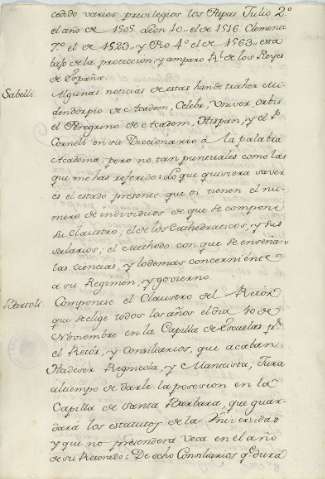 cedido varios privilegios los Papas Julio 2º
el año de 1505 Leon 10. el de 1516 Clemente
7º el de 1523 y Pio 4º el de 1563, esta
bajo de la proteccion y amparo Rl. de los Reyes
de España.
Sabelli. Algunas noticias de estas han de traher Mi-
dendorpio de Academ,
el Peregrino de Academ, Hispan, y el P.
Corneli en su Diccionario à la palabra
Academa pero no tan puntuales como las
que me has referido: Lo que quisiera saver
es el estado presente que oi tienen el nu-
mero de individuos de que se compone
su claustro, el de los Cathedraticos, y sus
salarios, el methodo con que se enseñan
las ciencias y lo demas concerniente
a su Regimen, y govierno.
Bartoli. Componese el Claustro del Retor
que se elige todos los años el dia 10 de
Noviembre en la Capilla de Escuelas pr.
el Retor, y Consiliarios, que acaban
Hadevser Regnicola, y Manteista, Jura
al tiempo de darle la posesion en la
Capilla de Santa Barbara, que guar-
dará los estatutos de la Universidad
y que no pretenderá Veca en el año
de su Retorado: De ocho Consiliarios qe. dura